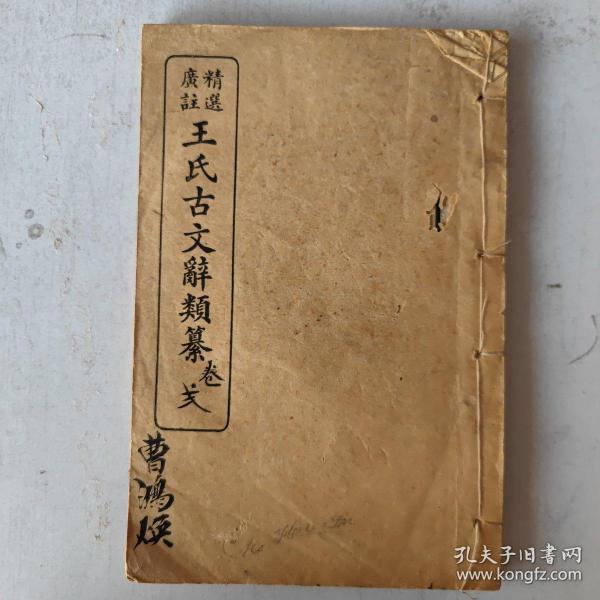 精選
廣註
王氏古文辭類纂
卷
弍
曹鴻煐
孔夫子旧书网
www.kongfz.com